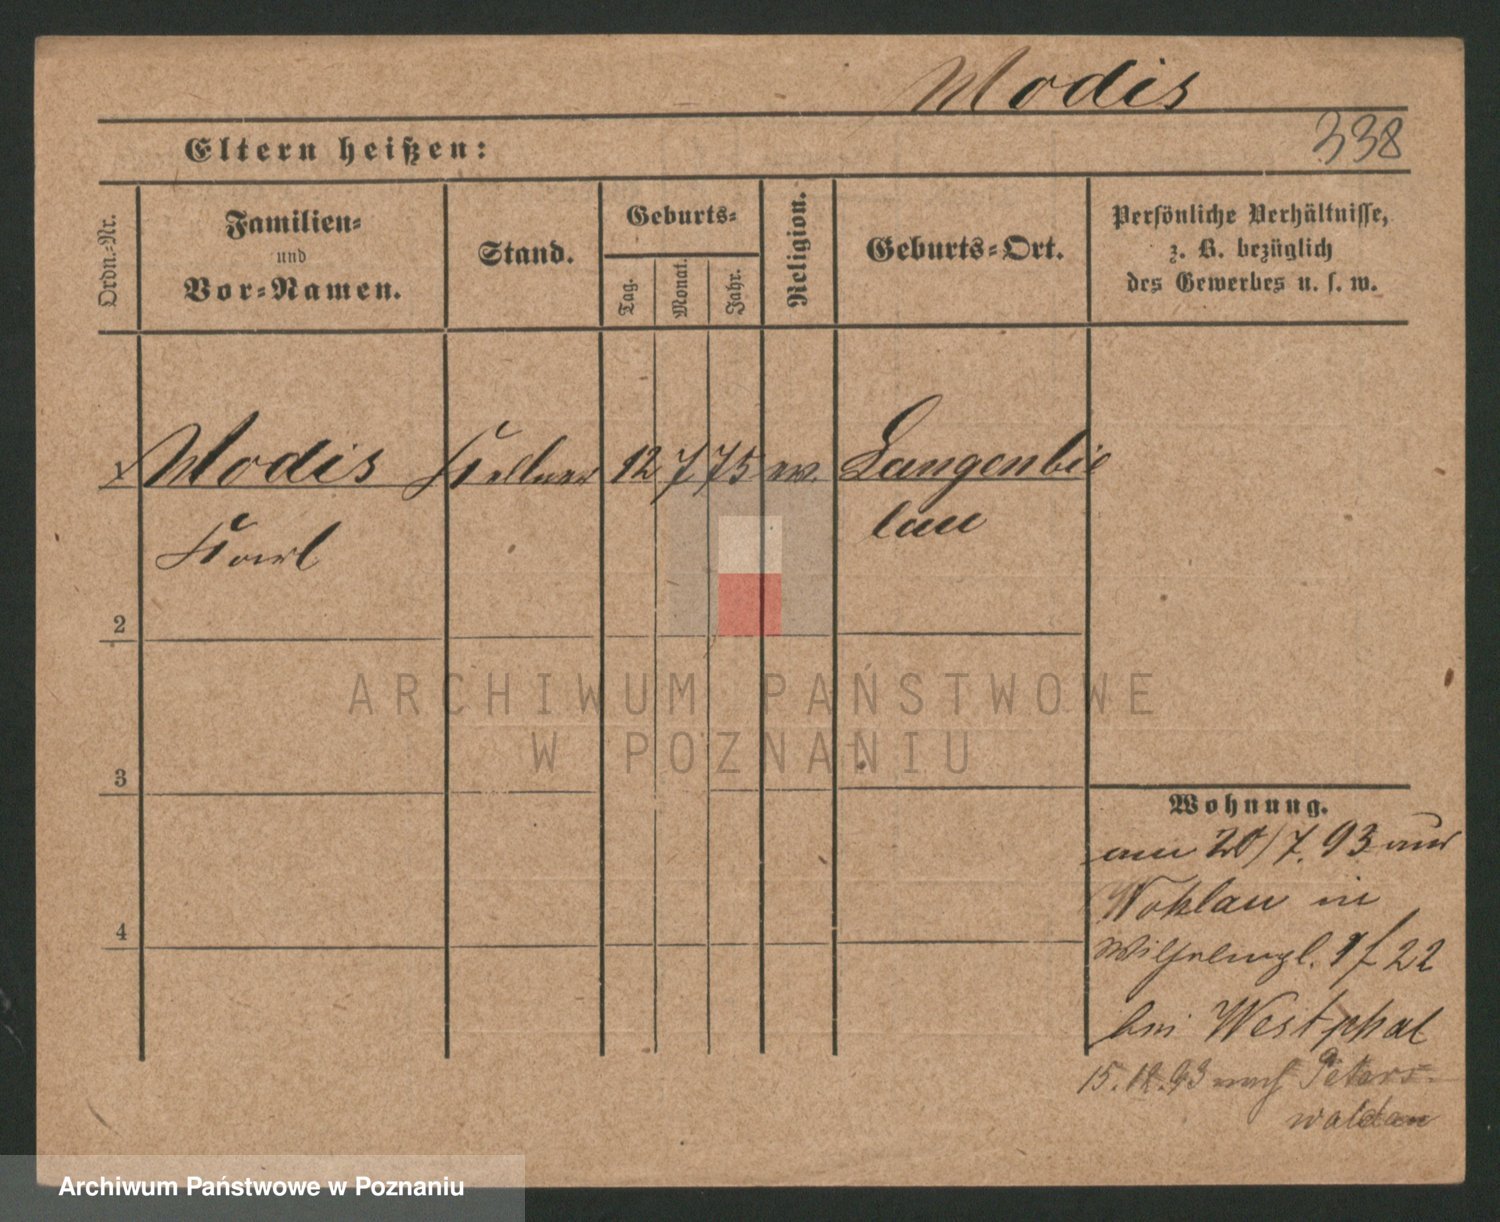 Modis
338
Eltern heißen:
Ordn.-Nr.
Familien-
und
Vor-Namen.
Stand.
Geburts-
Tag.
Monat.
Jahr.
Religion.
Geburts-Ort.
Persönliche Verhältnisse,
z. B. bezüglich
des Gewerbes u. s. w.
1 Modis Kellner 12 7 75 ev. Langenbie
Karl lau
2
3
4
Wohnung.
am 20/7. 93 aus
Wohlau in
Wilhelmpl. 22
bei Westphal
15.12.93 nach Peters-
waldau
ARCHIWUM PAŃSTWOWE
W POZNANIU
Archiwum Państwowe w Poznaniu